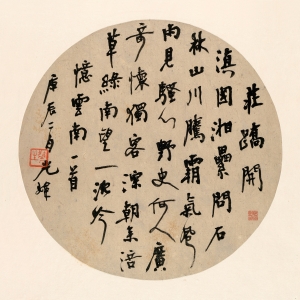 莊蹻開
滇因湘纍問石
林山川騰霸氣風
雨見騷心野史何人廣
奇懷獨客深朝來涪
草綠南望一沈吟
憶雲南一首
庚辰二月